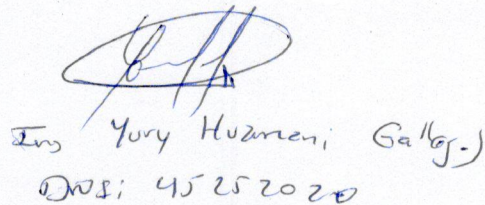 Ing Yury Huamani Gallegos
DNI: 45252020